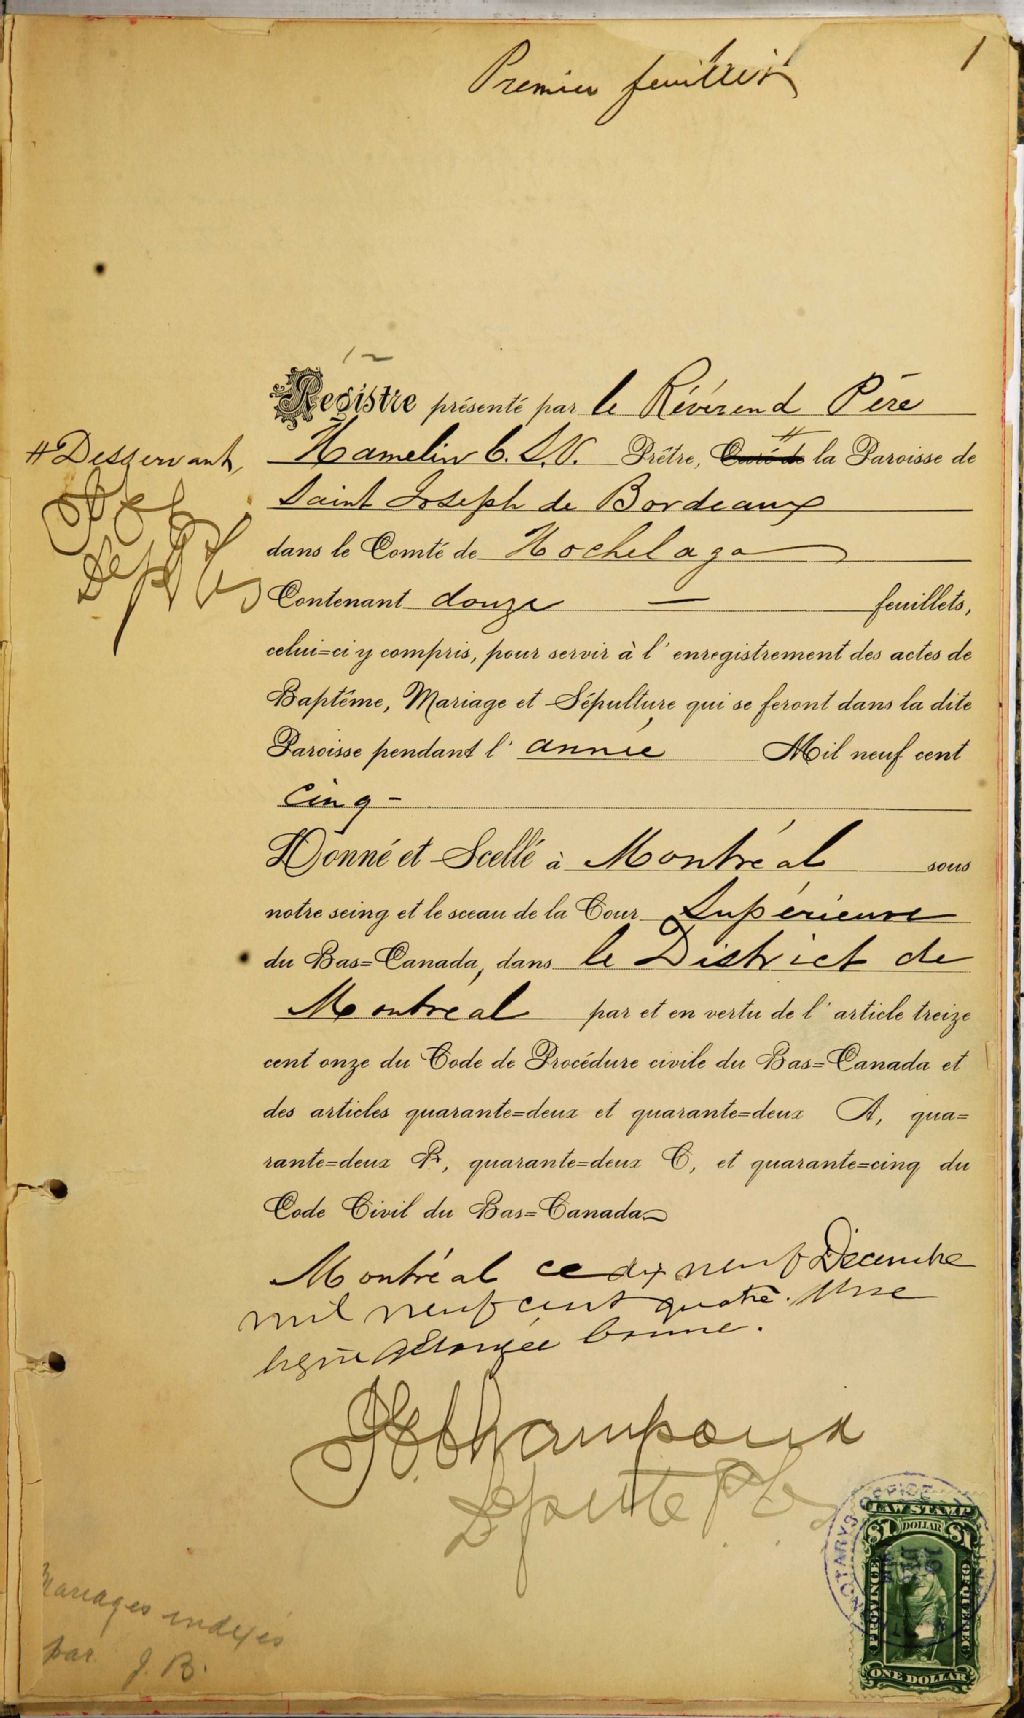 Premier feuillet
1
Registre présenté par le Révérend Père
Hamelin C.S.V. Prêtre, Curé de la Paroisse de
# Desservant,
Saint Joseph de Bordeaux
dans le Comté de Hochelaga
Dep P
Contenant douze — feuillets,
celui=ci y compris, pour servir à l'enregistrement des actes de
Baptême, Mariage et Sépulture qui se feront dans la dite
Paroisse pendant l'année Mil neuf cent
cinq -
Donné et Scellé à Montréal sous
notre seing et le sceau de la Cour Supérieure
du Bas=Canada, dans le District de
Montréal par et en vertu de l'article treize
cent onze du Code de Procédure civile du Bas=Canada et
des articles quarante=deux et quarante=deux A, qua=
rante=deux B, quarante=deux C, et quarante=cinq du
Code Civil du Bas=Canada
Montréal ce dix neuf Décembre
mil neuf cent quatre. Une
ligne bonne.
Champoux
Député P
Mariages indexés
par J. B.
NOTARYS OFFICE
LAW STAMP
$1 DOLLAR $1
PROVINCE OF QUEBEC
ONE DOLLAR